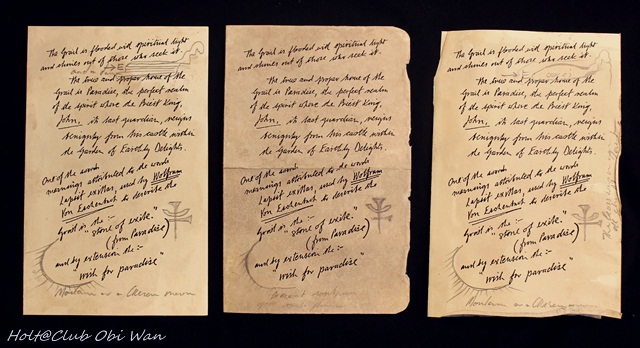 The Grail is flooded with spiritual light
and shines out of those who seek it.
The true and proper home of the
Grail is Paradise, the perfect realm
of the spirit where the Priest King,
John, its last guardian, reigns
benignly from his castle within
the Garden of Earthly Delights.
One of the
meanings attributed to the words
lapsit exillas, used by Wolfram
Von Eschenbach to describe the
Grail is the:-
"stone of exile."
(from Paradise)
and by extension the:-
"wish for paradise"
The Grail is flooded with spiritual light
and shines out of those who seek it.
The true and proper home of the
Grail is Paradise, the perfect realm
of the spirit where the Priest King,
John, its last guardian, reigns
benignly from his castle within
the Garden of Earthly Delights.
One of the
meanings attributed to the words
lapsit exillas, used by Wolfram
Von Eschenbach to describe the
Grail is the:-
"stone of exile."
(from Paradise)
and by extension the:-
"wish for paradise"
The Grail is flooded with spiritual light
and shines out of those who seek it.
The true and proper home of the
Grail is Paradise, the perfect realm
of the spirit where the Priest King,
John, its last guardian, reigns
benignly from his castle within
the Garden of Earthly Delights.
One of the
meanings attributed to the words
lapsit exillas, used by Wolfram
Von Eschenbach to describe the
Grail is the:-
"stone of exile."
(from Paradise)
and by extension the:-
"wish for paradise"
Holt@Club Obi Wan